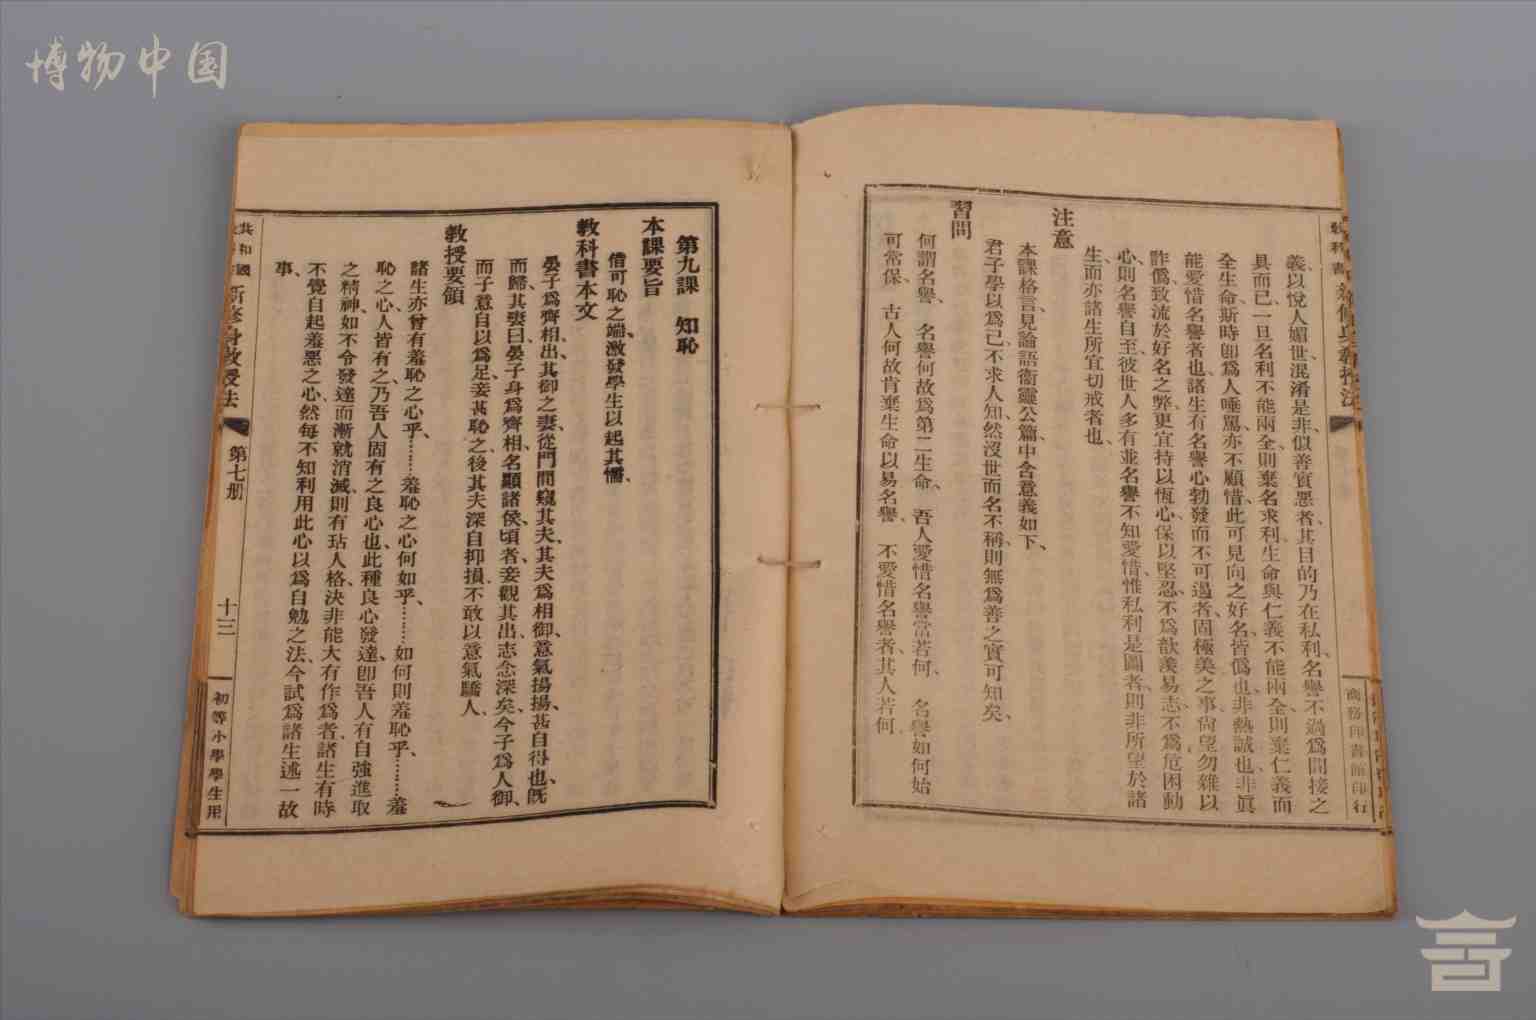 博物中国
義、以悅人媚世、混淆是非、似善實惡者、其目的乃在私利、名譽不過爲間接之
具而已、一旦名利不能兩全、則棄名求利、生命與仁義不能兩全、則棄仁義而
全生命、斯時卽爲人唾罵、亦不顧惜、此可見向之好名、皆僞也、非熱誠也、非眞
能愛惜名譽者也、諸生有名譽心勃發而不可遏者、固極美之事、尙望勿雜以
詐僞、致流於好名之弊、更宜持以恆心、保以堅忍、不爲歆羨易志、不爲危困動
心、則名譽自至、彼世人多有並名譽不知愛惜、惟私利是圖者、則非所望於諸
生、而亦諸生所宜切戒者也、
注意
本課格言、見論語衞靈公篇中、含意義如下、
君子學以爲己、不求人知、然沒世而名不稱、則無爲善之實可知矣、
習問
何謂名譽、 名譽何故爲第二生命、 吾人愛惜名譽當若何、 名譽如何始
可常保、 古人何故肯棄生命以易名譽、 不愛惜名譽者、其人若何
商務印書館印行
第九課 知恥
本課要旨
借可恥之端、激發學生以起其懦、
教科書本文
晏子爲齊相、出、其御之妻、從門間窺其夫、其夫爲相御、意氣揚揚、甚自得也、旣
而歸、其妻曰、晏子身爲齊相、名顯諸侯、頃者妾觀其出、志念深矣、今子爲人御、
而子意自以爲足、妾甚恥之、後其夫深自抑損、不敢以意氣驕人、
教授要領
諸生亦曾有羞恥之心乎、……羞恥之心何如乎、……如何則羞恥乎、……羞
恥之心、人皆有之、乃吾人固有之良心也、此種良心發達、卽吾人有自強進取
之精神、如不令發達而漸就消滅、則有玷人格、決非能大有作爲者、諸生有時
不覺自起羞惡之心、然每不知利用此心以爲自勉之法、今試爲諸生述一故
事、
共和國
新修身教授法 第七册 十三 初等小學學生用